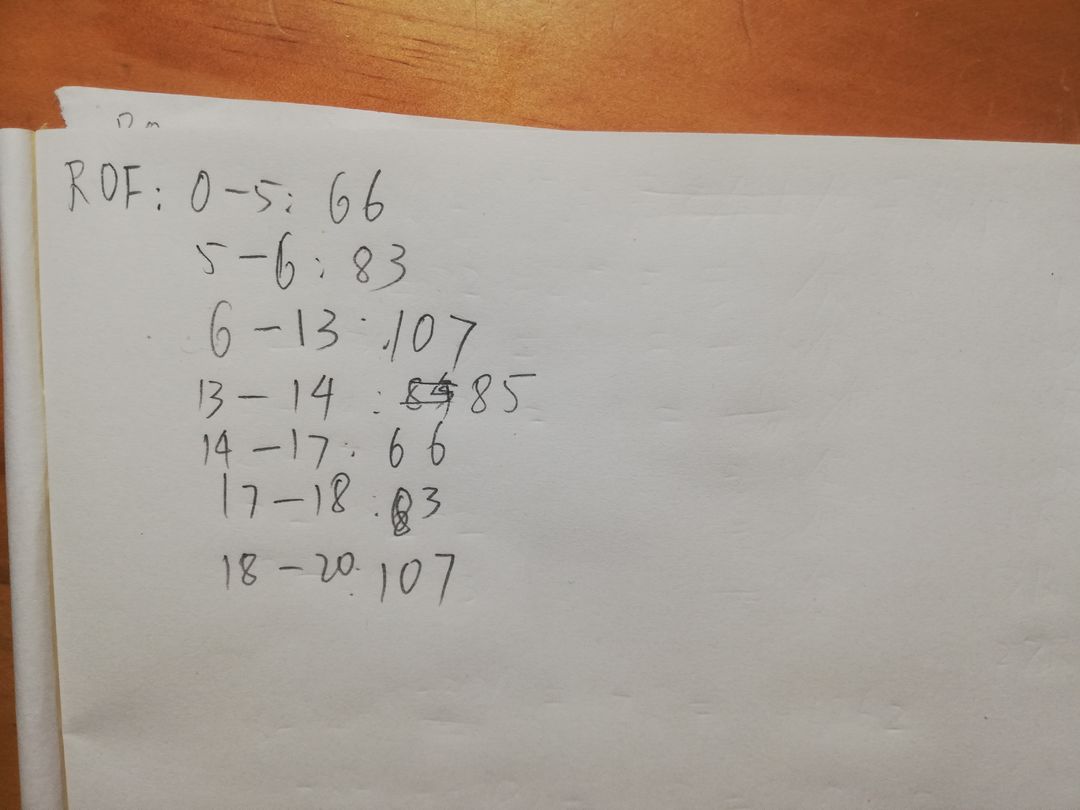 ROF: 0-5: 66
5-6: 83
6-13: 107
13-14: 85
14-17: 66
17-18: 83
18-20: 107